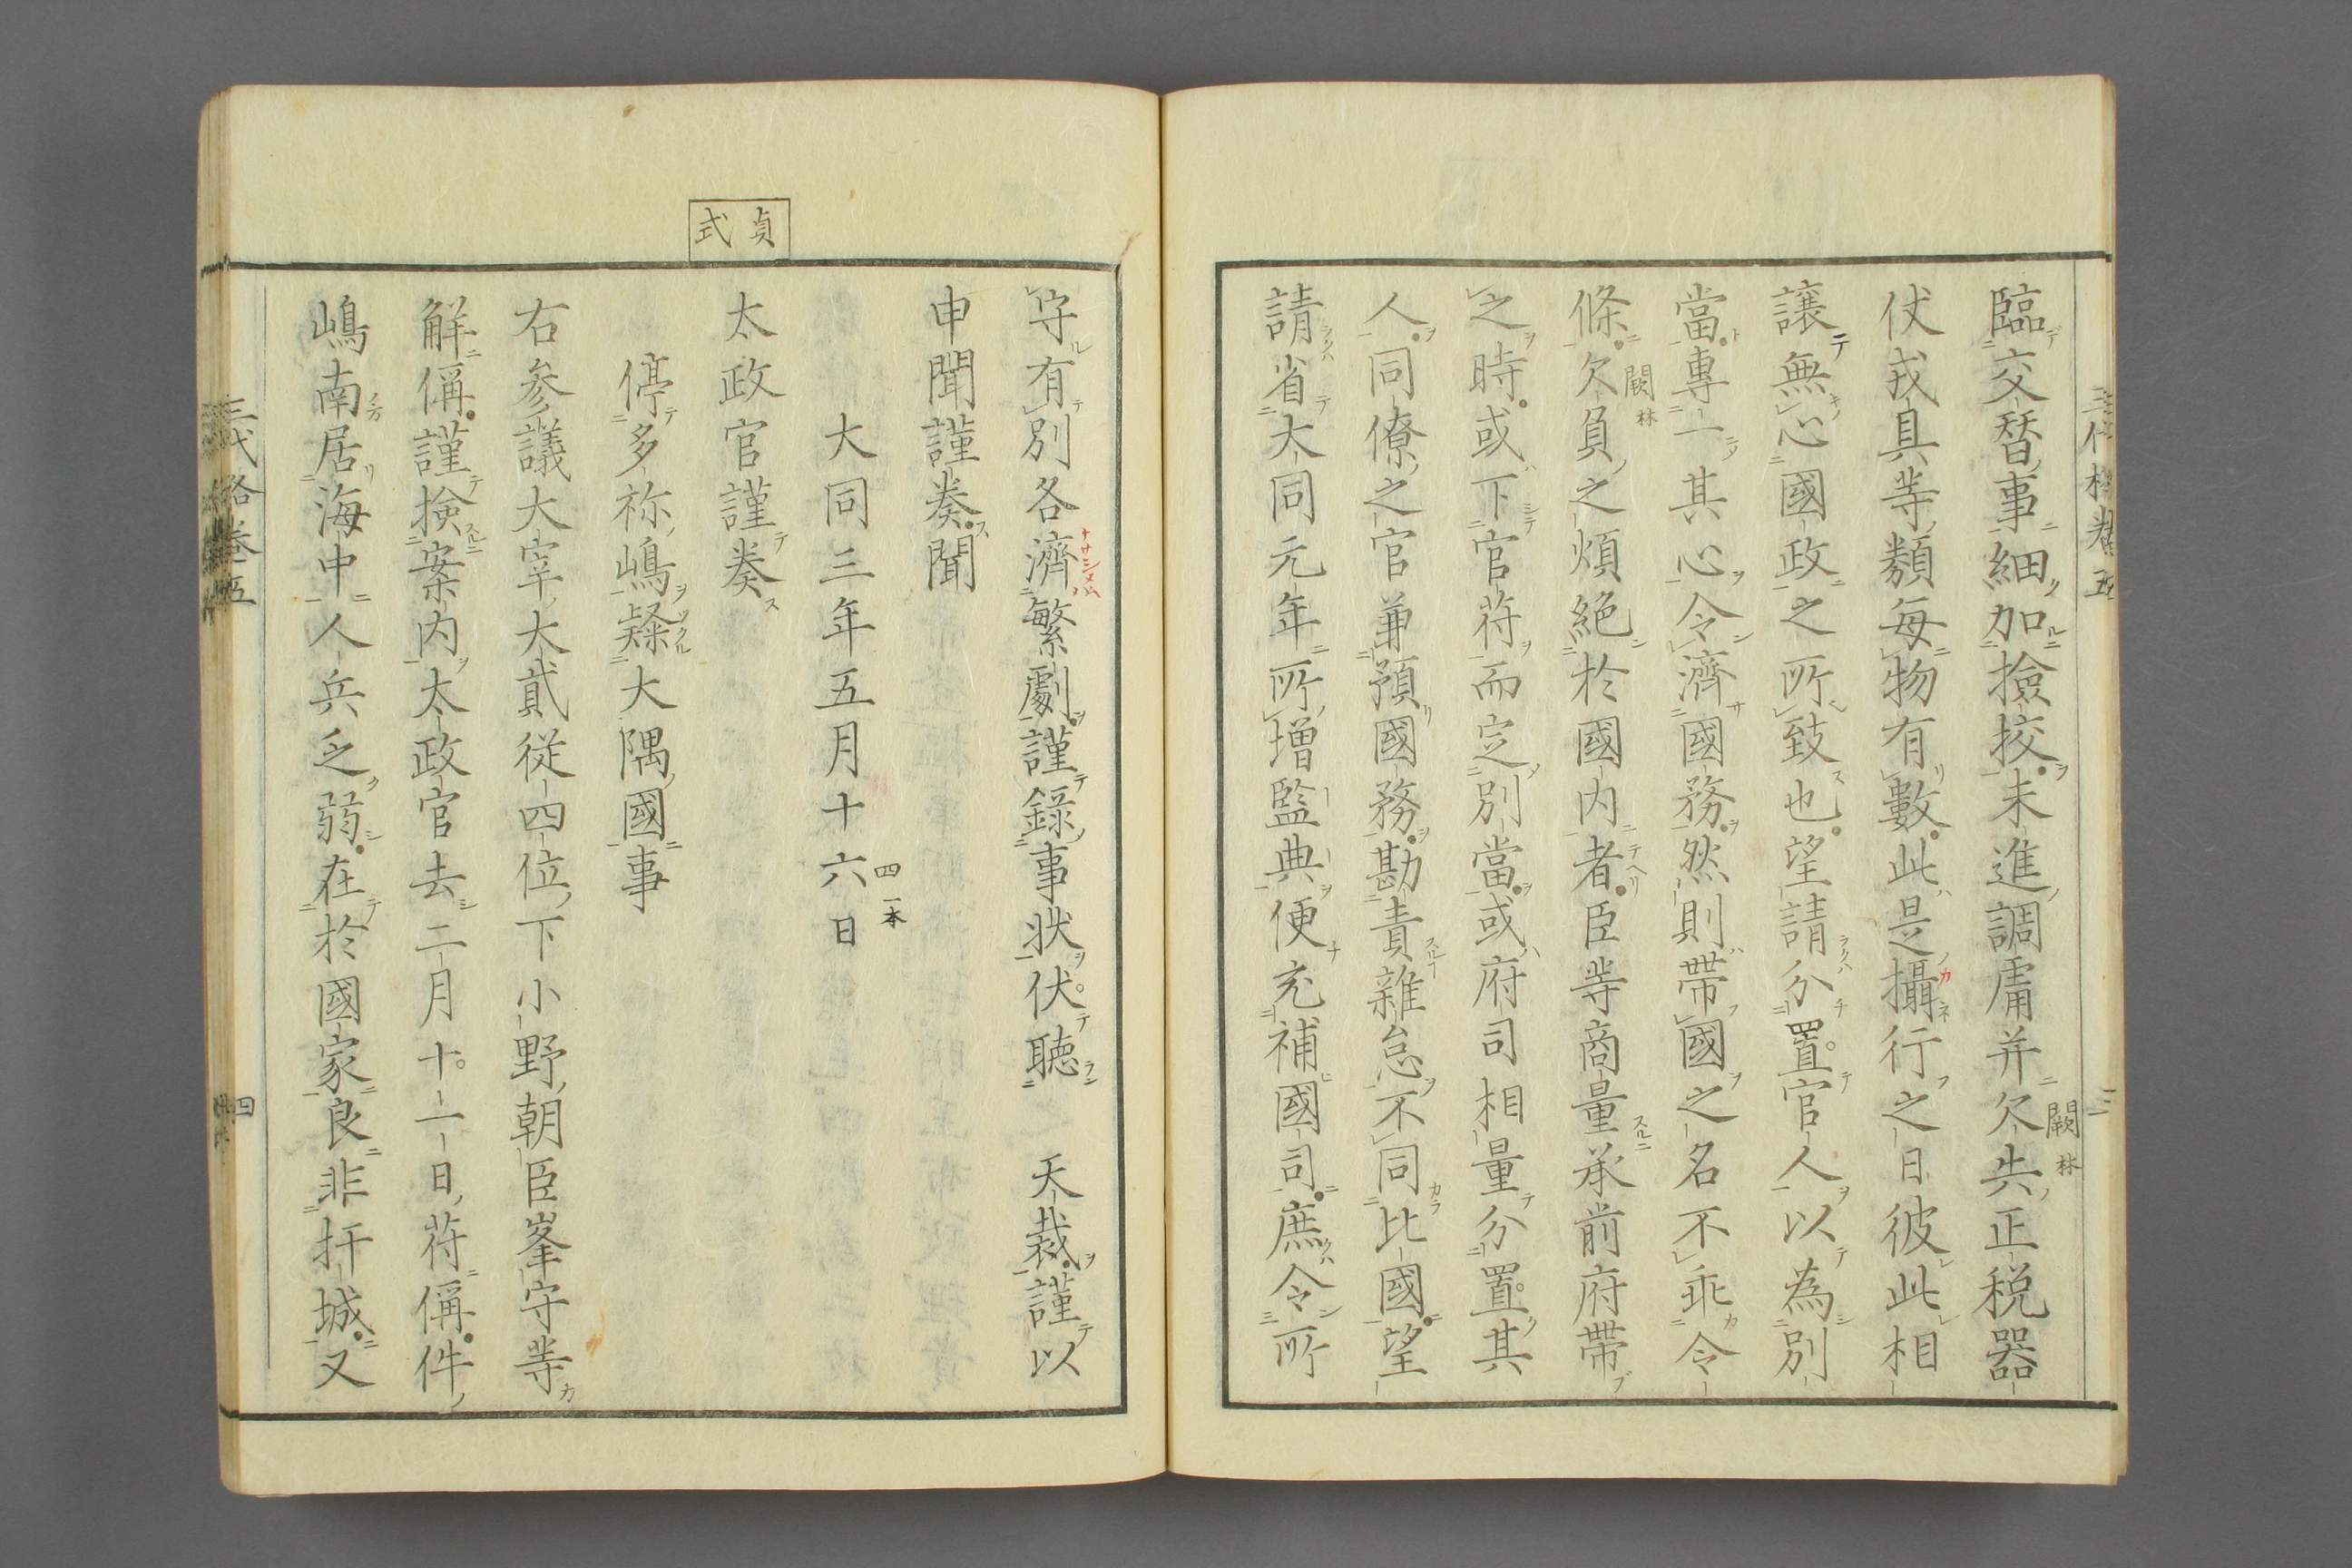 臨交替事細加撿挍未進調庸并欠失正税器
仗戎具等類毎物有數此是攝行之日彼此相
譲無心國政之所致也望請分置官人以為別
當專一其心令濟國務然則帶國之名不乖令
條欠負之煩絶於國内者臣等商量承前府帶
之時或下官苻而定別當或府司相量分置其
人同僚之官兼預國務勘責雜怠不同比國望
請省大同元年所増監典便充補國司庶令所
守有別各濟繁劇謹録事状伏聴 天裁謹以
申聞謹奏聞
大同三年五月十六日
太政官謹奏
停多祢嶋隷大隅國事
右参議大宰大貳従四位下小野朝臣峯守等
解偁謹検案内太政官去二月十一日苻偁件
嶋南居海中人兵乏弱在於國家良非扞城又
貞式
闕林
闕林
四一本
三代格巻五
四
三代格巻五
三